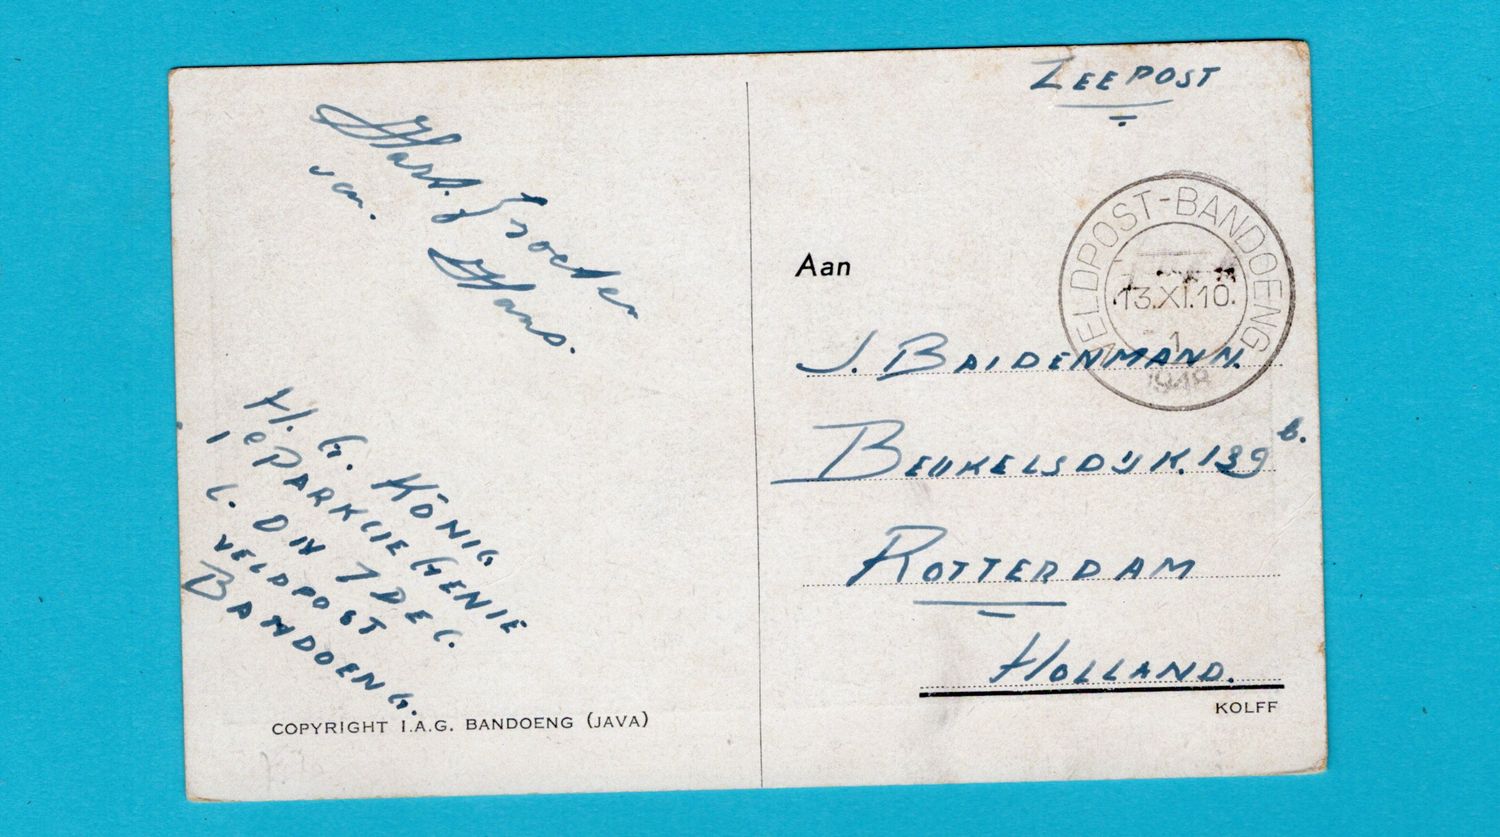 Hart. Groeten
van.
Hans.
H. G. KÖNIG
1e PARKCIE GENIE
C. DIV 7 DEC.
VELDPOST
BANDOENG.
COPYRIGHT I.A.G. BANDOENG (JAVA)
ZEEPOST
VELDPOST-BANDOENG
13.XI.10.
1
1948
Aan
J. BAIDENMANN.
BEUKELSDIJK. 139 b.
ROTTERDAM
HOLLAND.
KOLFF